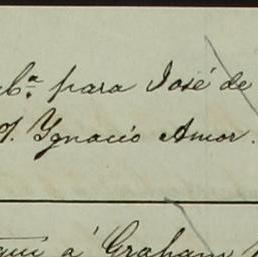 para José de
Ygnacio Amor.
á Graham